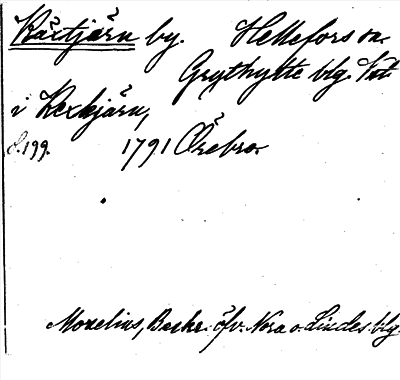 Räxtjärn by. Hellefors sn.
Grythytte blg. Väst.
i Rexkjärn,
S. 199. 1791 Örebro.
Moxelius, Beskr. öfv. Nora o. Lindes blg.